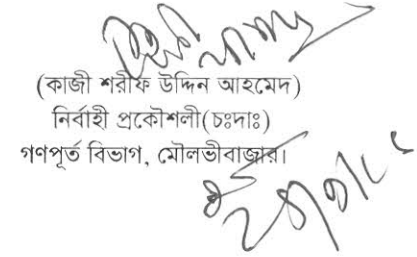 (কাজী শরীফ উদ্দিন আহমেদ)
নির্বাহী প্রকৌশলী(চঃদাঃ)
গণপূর্ত বিভাগ, মৌলভীবাজার।